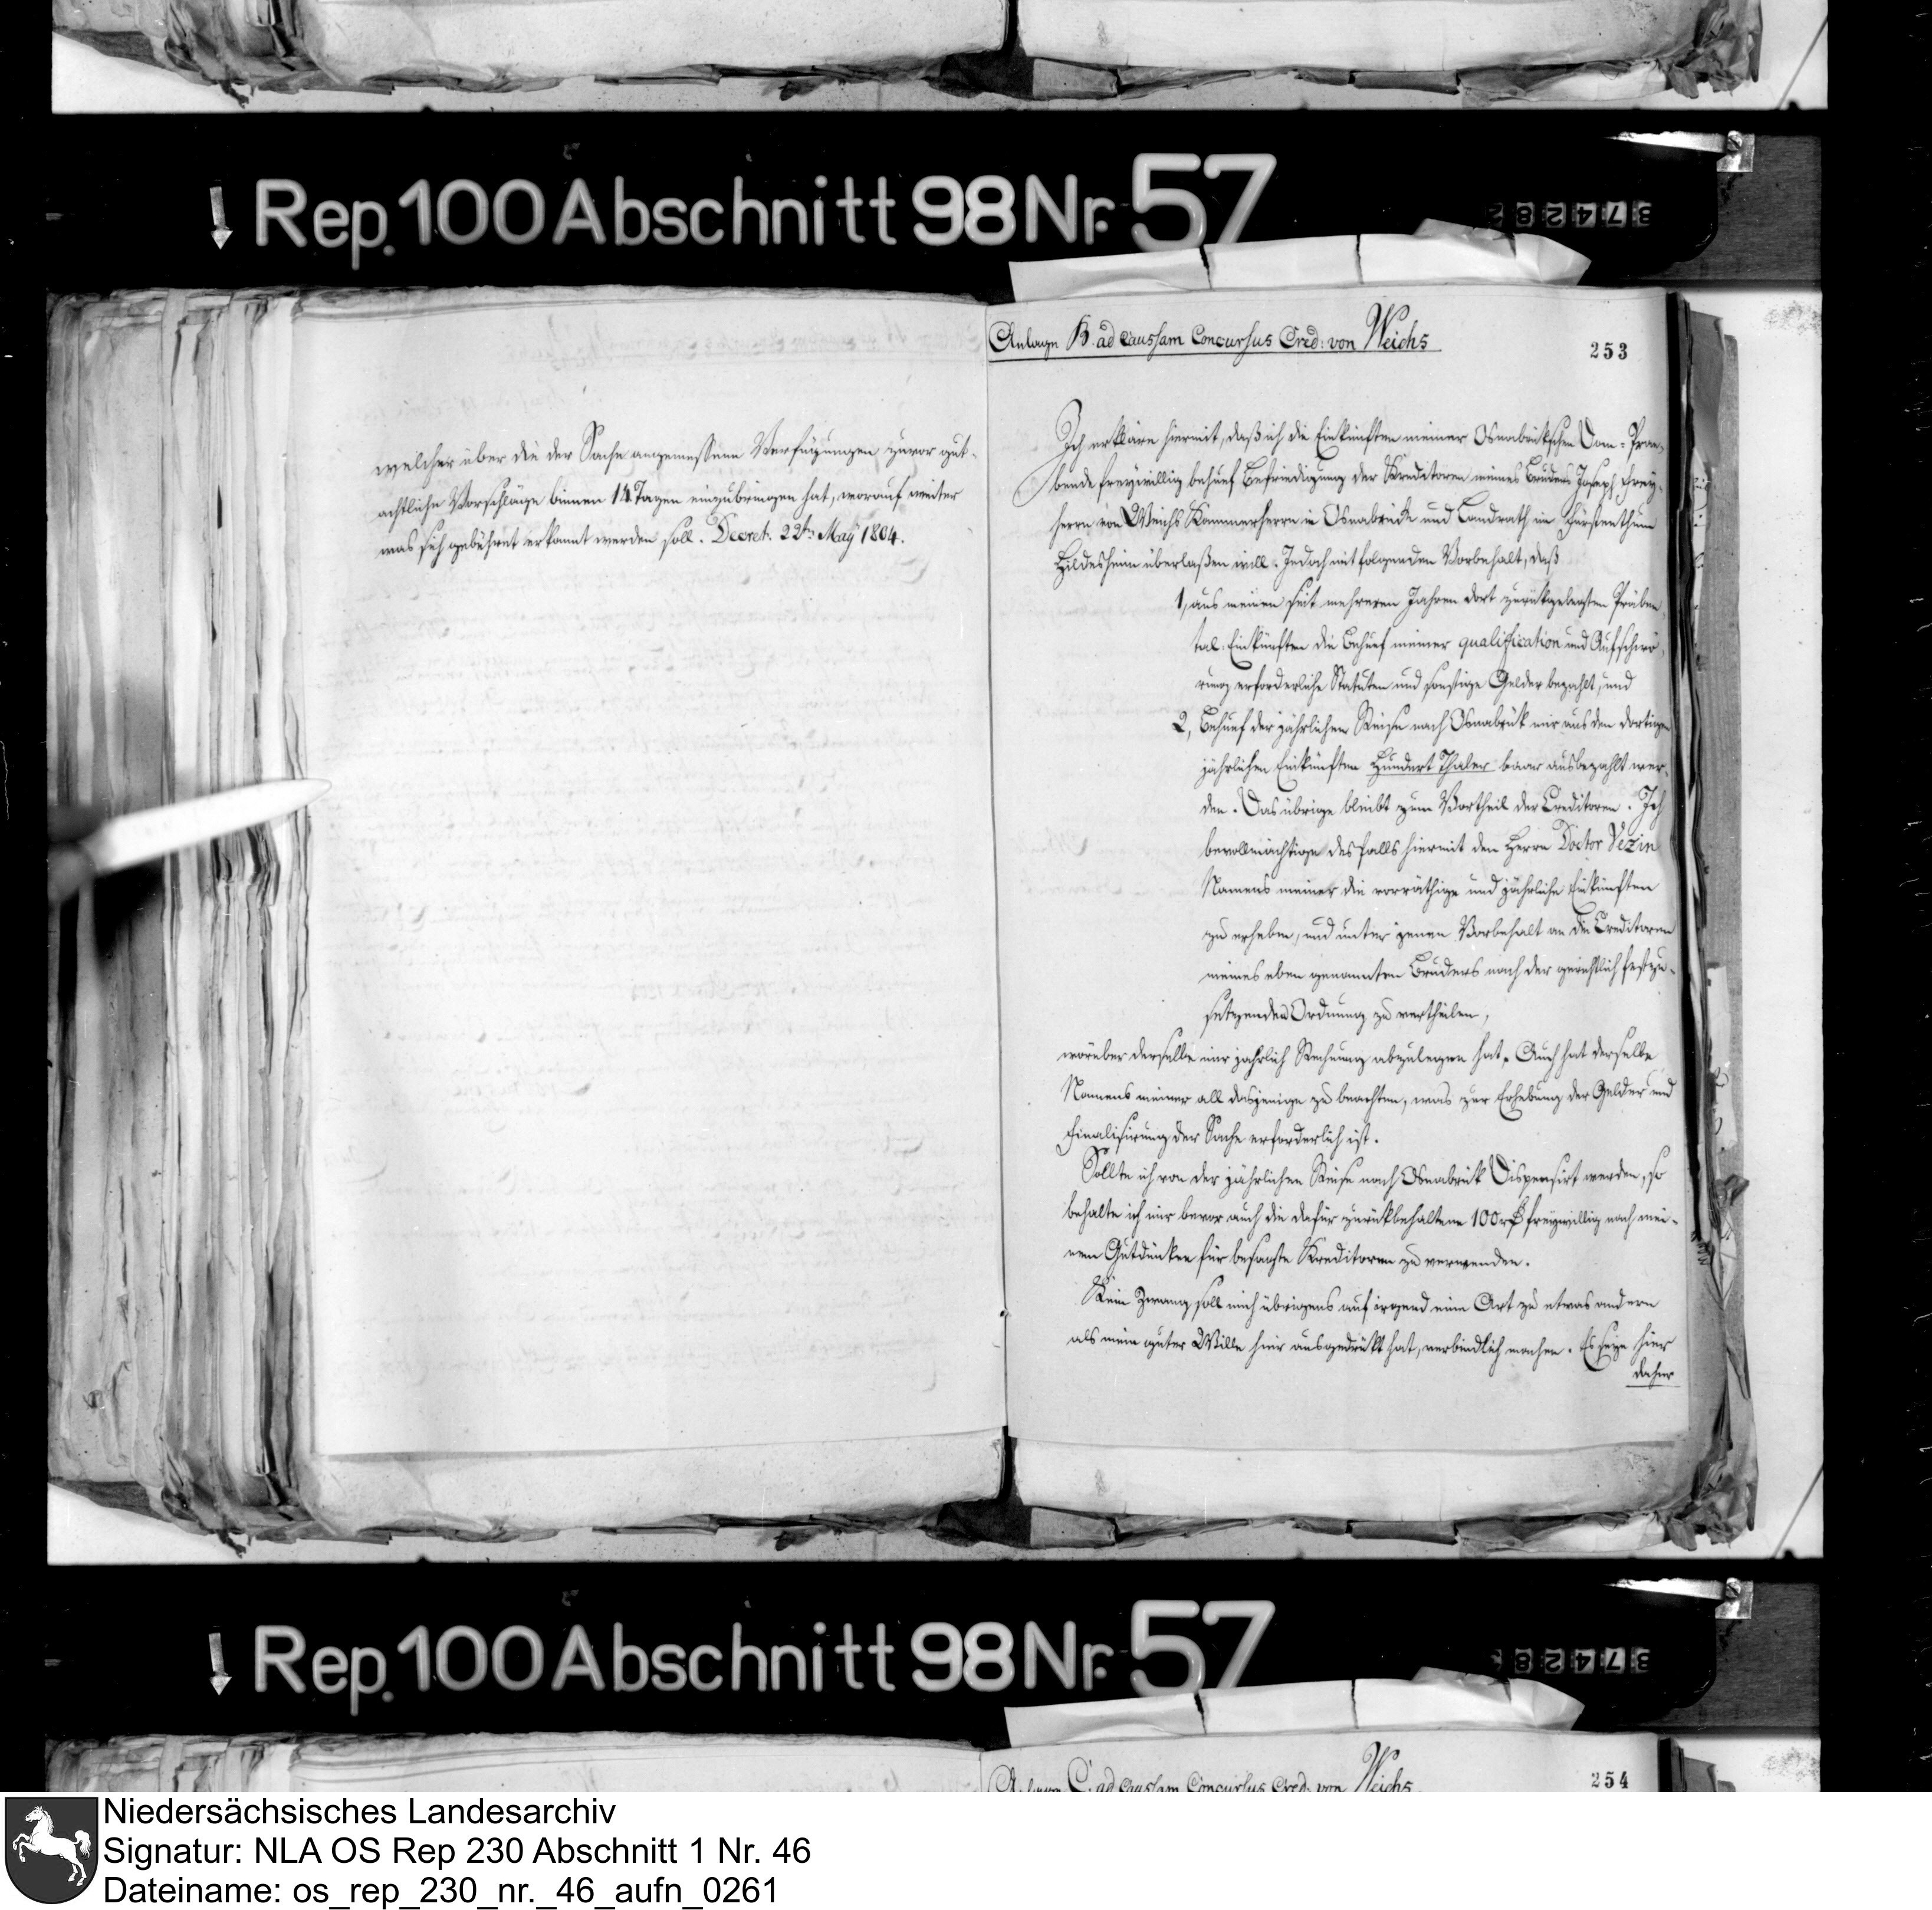 Rep. 100 Abschnitt 98 Nr. 57
374282
welcher über die der Sache angemessene Verfügungen zuvor gut-
achtliche Vorschläge binnen 14 Tagen einzubringen hat, worauf weiter
was sich gebühret erkannt werden soll. Decret. 22ten May 1804.
Anlage B. ad Caussam Concursus Cred: von Weichs
253
Ich erkläre hiermit, daß ich die Einkünften meiner Osnabrükschen Dom-Præ-
bende freywillig behuef Befriedigung der Kreditoren meines Bruders Joseph Frey-
herrn von Weichs Kammerherrn in Osnabrück und Landrath im Fürstenthum
Hildesheim überlaßen will. Jedoch mit folgenden Vorbehalt, daß
1, aus meinen seit mehreren Jahren dort zurükgelegten Präben-
tal-Einkünften die Behuef meiner qualification und Aufschwö-
rung erforderliche Statuten und sonstige Gelder bezahlt, und
2, Behuef der jährlichen Reise nach Osnabrük mir aus den dortigen
jährlichen Einkünften Hundert Thaler baar ausbezahlt wer-
den. Das übrige bleibt zum Vortheil der Creditoren. Ich
bevollmächtige desfalls hiermit den Herrn Doctor Vezin
Namens meiner die vorräthige und jährliche Einkünften
zu erheben, und unter jenem Vorbehalt an die Creditoren
meines eben genannten Bruders nach der gerichtlich festzu-
setzenden Ordnung zu vertheilen,
worüber derselbe mir jährlich Rechnung abzulegen hat. Auch hat derselbe
Namens meiner all dasjenige zu beachten, was zur Erhebung der Gelder und
Finalisirung der Sache erforderlich ist.
Sollte ich von der jährlichen Reise nach Osnabrük Dispensirt werden, so
behalte ich mir bevor auch die dafür zurükbehaltene 100 rß freywillig nach mei-
nem Gutdünken für besagte Kreditoren zu verwenden.
Kein Zwang soll mich übrigens auf irgend eine Art zu etwas andern
als mein guter Wille hier ausgedrükt hat, verbindlich machen. Es seye hier
daher
Rep. 100 Abschnitt 98 Nr. 57
37428
Anlage C. ad Caussam Concursus Cred: von Weichs.
254
Niedersächsisches Landesarchiv
Signatur: NLA OS Rep 230 Abschnitt 1 Nr. 46
Dateiname: os_rep_230_nr._46_aufn_0261